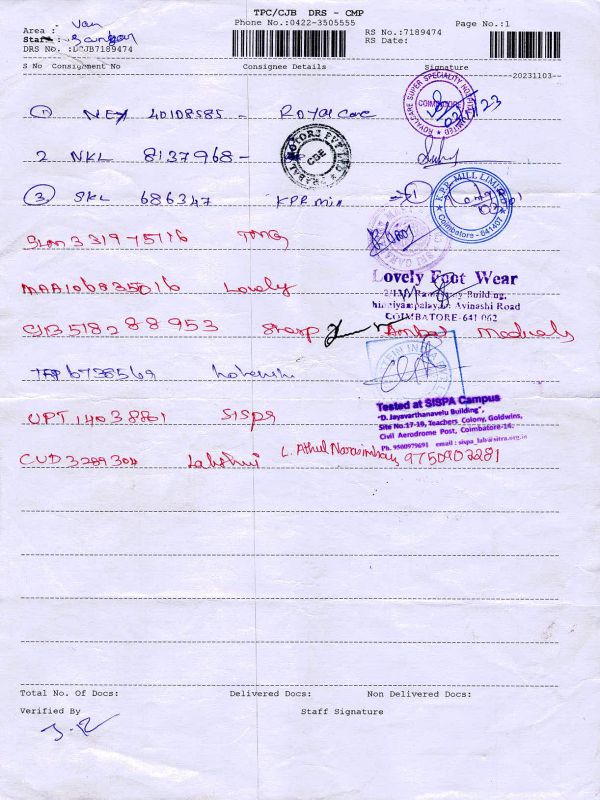 TPC/CJB DRS - CMP
Phone No.:0422-3505555
Page No.:1
Area : Van
RS No.:7189474
Staff :
RS Date:
DRS No. :DCJB7189474
S No Consignment No Consignee Details Signature
20231103
1 40108585 - Royal Care
ROYALCARE SUPER SPECIALITY HOSPITAL LIMITED
COIMBATORE
2 NKL 8137968 -
AMBAL MOTORS PVT LTD
CBE
3 SKL 686347 KPR mill
K.P.R. MILL LIMITED
Coimbatore - 641407
MAA106835016 Lovely
Lovely Foot Wear
Avinashi Road
COIMBATORE-641 062
CJB518288953 Sharp Ambal
6738569
UPT 14038801 SISPA
Tested at SISPA Campus
"D. Jayavarthanavelu Building",
Site No.17-19, Teachers Colony, Goldwins,
Civil Aerodrome Post, Coimbatore-14.
Ph. 9500979691 email : sispa_lab@sitra.org.in
CUD3289304 Lakshmi L. Athul Narasimhan 9750902281
Total No. Of Docs: Delivered Docs: Non Delivered Docs:
Verified By Staff Signature